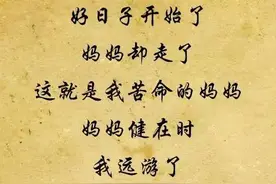 好日子开始了
妈妈却走了
这就是我苦命的妈妈
妈妈健在时
我远游了